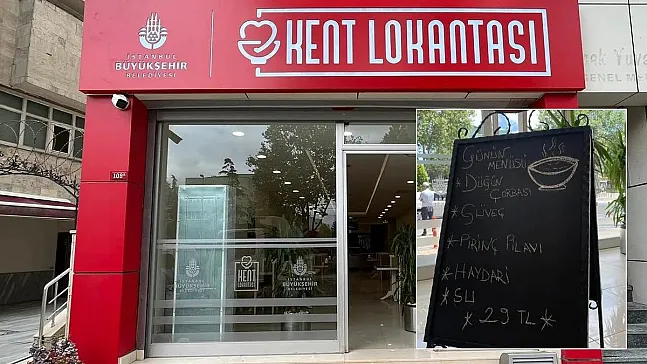 İSTANBUL
BÜYÜKŞEHİR
BELEDİYESİ
KENT LOKANTASI
GENEL ME
108A
İSTANBUL
BÜYÜKŞEHİR
BELEDİYESİ
KENT
LOKANTASI
İSTANBUL
BÜYÜKŞEHİR
BELEDİYESİ
GÜNÜN
MENÜSÜ
* DÜĞÜN
ÇORBASI
* GÜVEÇ
* PİRİNÇ PİLAVI
* HAYDARİ
* SU
* 29 TL *